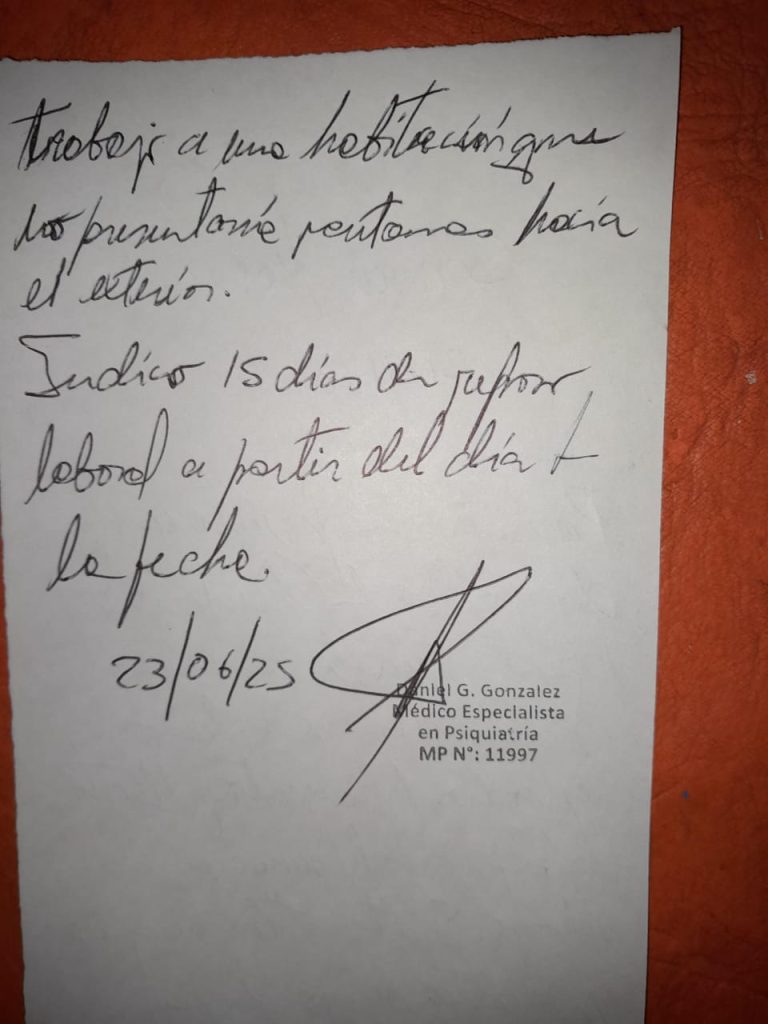 trabajo a una habitación que
no presentaría ventanas hacia
el exterior.
Indico 15 días de reposo
laboral a partir del día +
la fecha.
23/06/25
Daniel G. Gonzalez
Médico Especialista
en Psiquiatría
MP N°: 11997